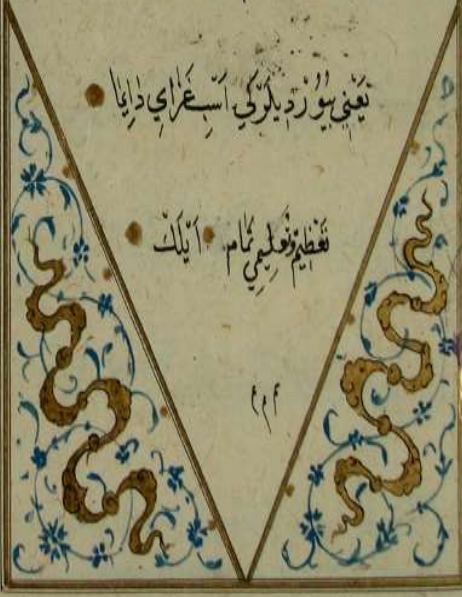 يَعْنِي بُيُورْدِيلَرْكِي دَايِمَا
تَعْظِيمْ وَتَعْلِيمِي تَمَام اَيْلَكْ
م م م